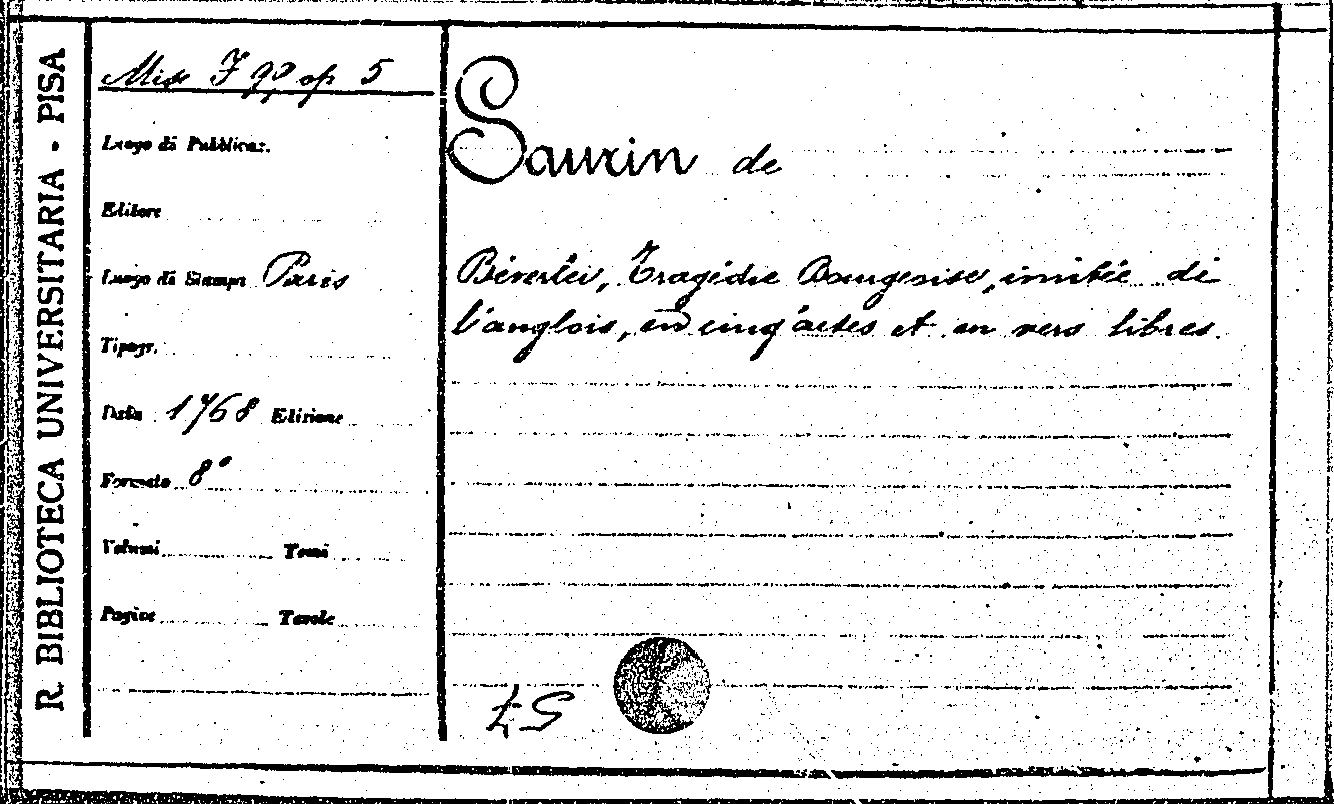 R. BIBLIOTECA UNIVERSITARIA - PISA
Misc F 90, op 5
Luogo di Pubblicaz.
Editore
Luogo di Stampa Paris
Tipogr.
Data 1768 Edizione
Formato 8°
Volumi Tomi
Pagine Tavole
Saurin de
Béverlei, Tragédie Bourgeoise, imitée de
l'anglois, en cinq actes et en vers libres.